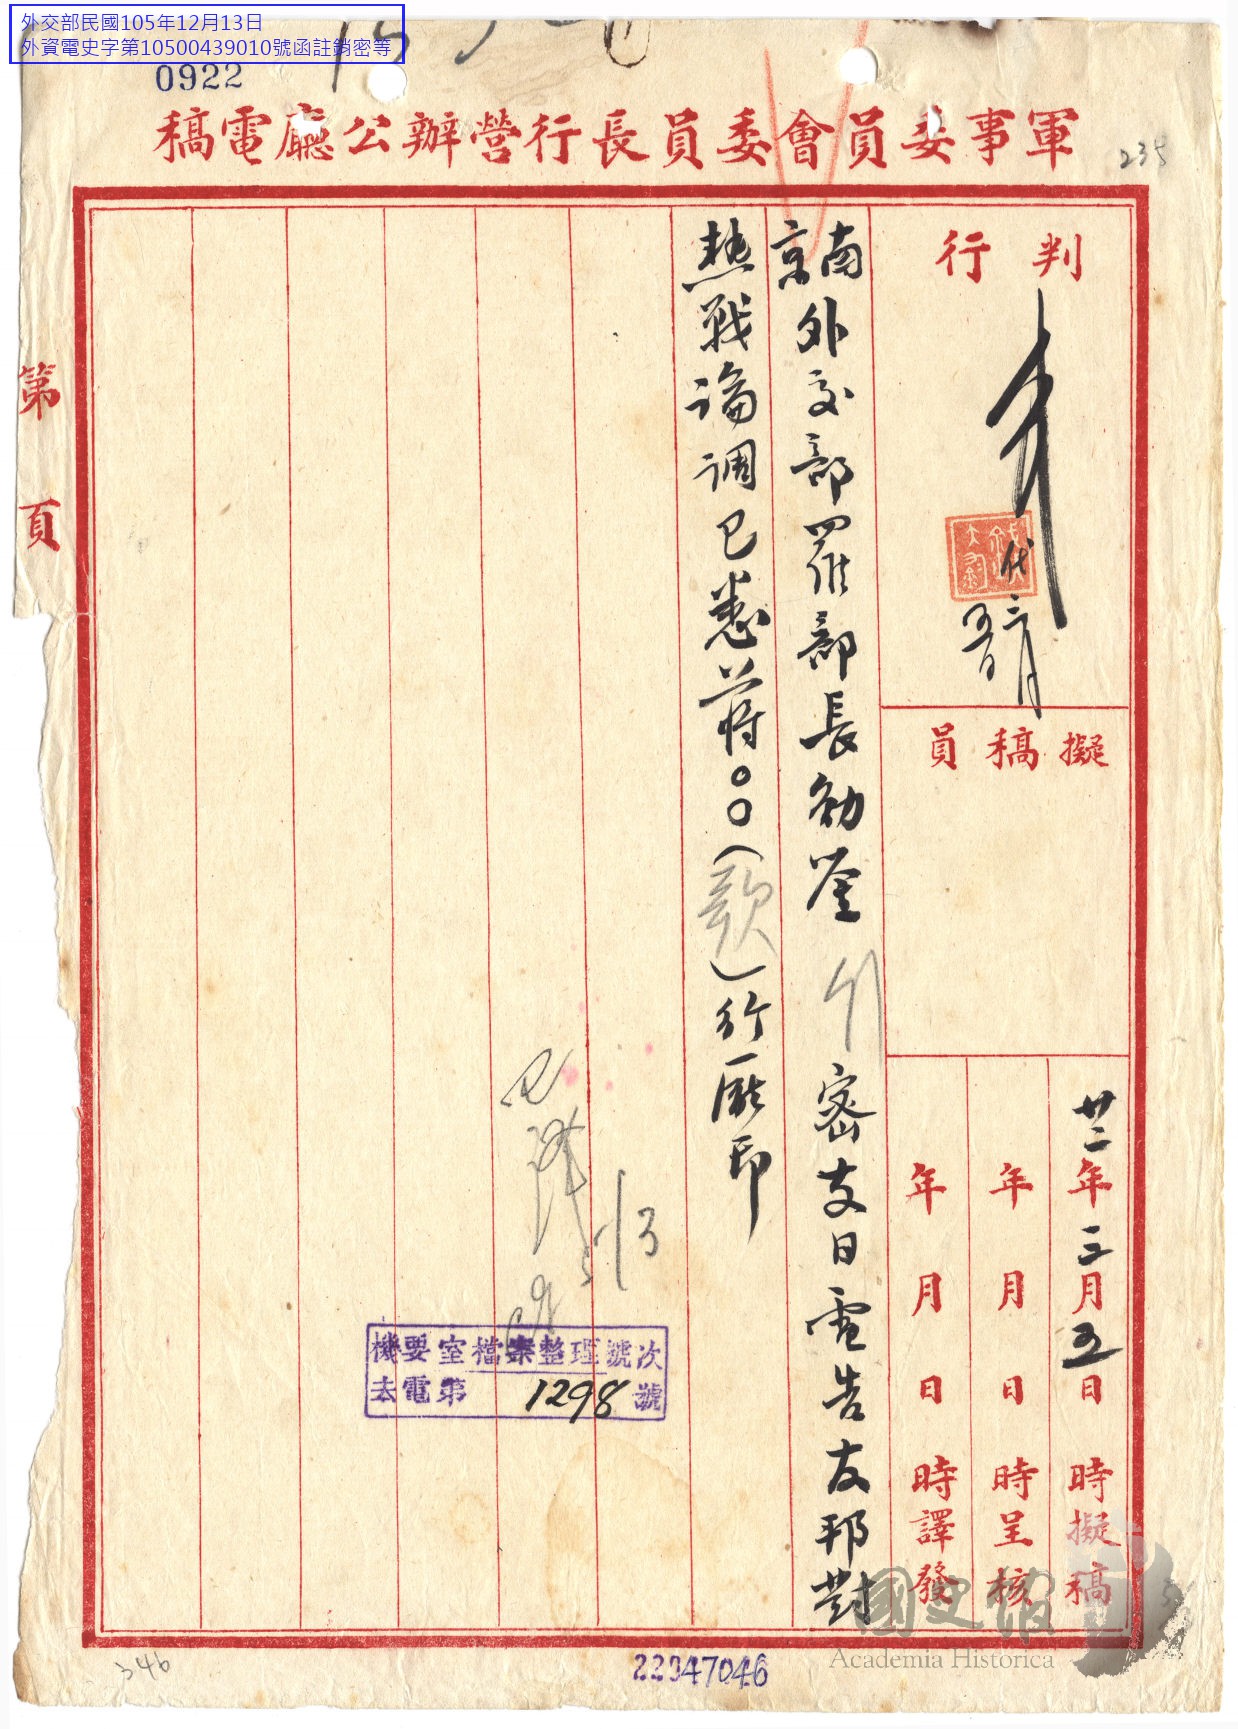 外交部民國105年12月13日
外資電史字第10500439010號函註銷密等
0922
軍事委員會委員長行營辦公廳電稿
235
判行
代
三月
五日
擬稿員
廿二年三月五日時擬稿
年月日時呈核
年月日時譯發
南京外交部羅部長勛鑒密支日電告友邦對
熱戰論調已悉蔣○○(歌)行廳印
第頁
機要室檔案整理號次
去電第1298號
國史館
Academia Historica
346
22347046